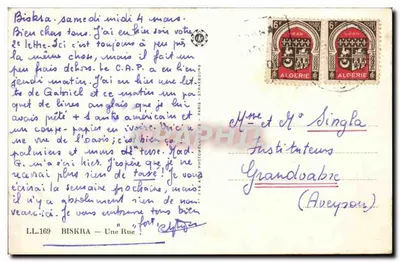 Biskra, samedi midi 4 mars.
Bien chers tous. J'ai eu hier soir votre
2e lettre. Ici c'est toujours à peu près
la même chose, mais il fait un
peu frais dehors. Le C.A.P a eu lieu
jeudi matin. J'ai eu hier une let-
de Gabriel et ce matin un pa-
quet de livres anglais que je lui
avais prêté + 1 autre américain et
un coupe-papier en ivoire. Ici
une vue de l'oasis
palmiers et
m'a écrit hier. J'espère que je ne
recevrai plus rien de taxé! Je vous
écrirai la semaine prochaine, mais
il n'y a absolument rien de nou-
veau ici. Je vous embrasse tous bien
fort.
LL.169 BISKRA — Une Rue
6F 6F
ALGERIE ALGERIE
Mme et Mr Singla
Instituteurs
Grandvabre
(Aveyron)